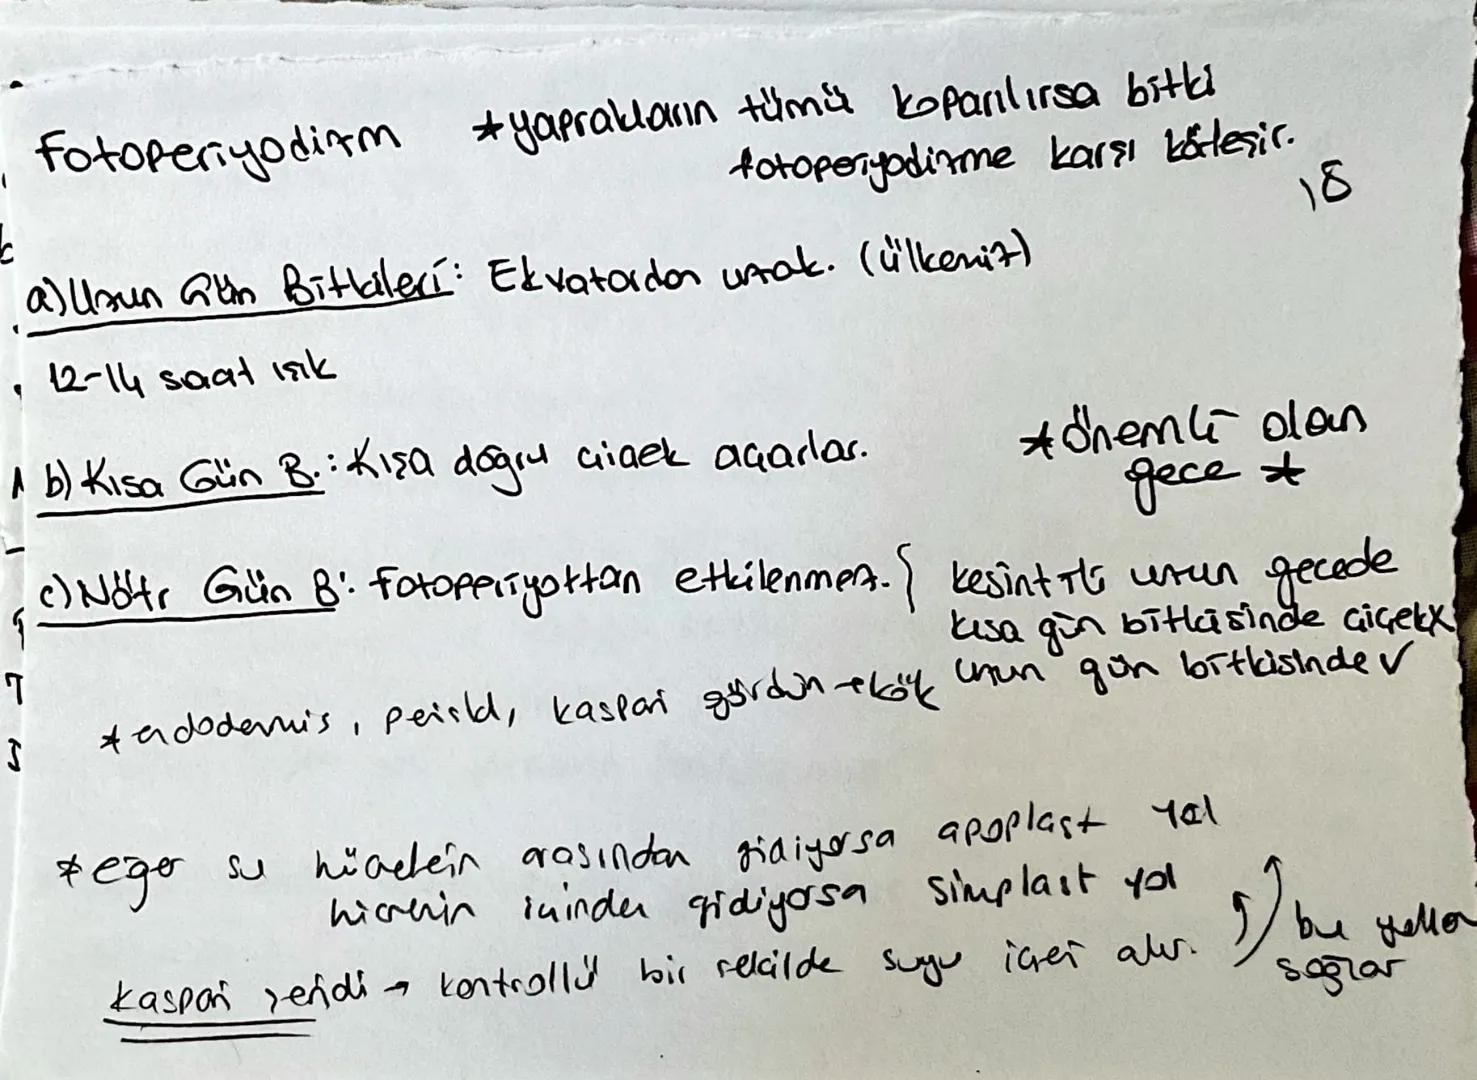 Fotoperiyodizm
*yaprakların tümü koparılırsa bitki
fotoperiyodizme karşı körleşir.
18
a) Uzun Gün Bitkileri: Ekvatordan uzak. (ülkemiz)
12-14 saat ışık
b) Kısa Gün B.: Kışa doğru çiçek açarlar.
*önemli olan
gece *
c) Nötr Gün B: Fotoperiyottan etkilenmez. {
kesintili uzun gecede
kısa gün bitkisinde çiçek X
uzun gün bitkisinde ✓
* endodermis, periskl, kaspari gördün → kök
* eğer su hücrelerin arasından gidiyorsa apoplast yol
hücrenin içinden gidiyorsa simplast yol
kaspari şeridi → kontrollü bir şekilde suyu içeri alır.
bu yolları
sağlar